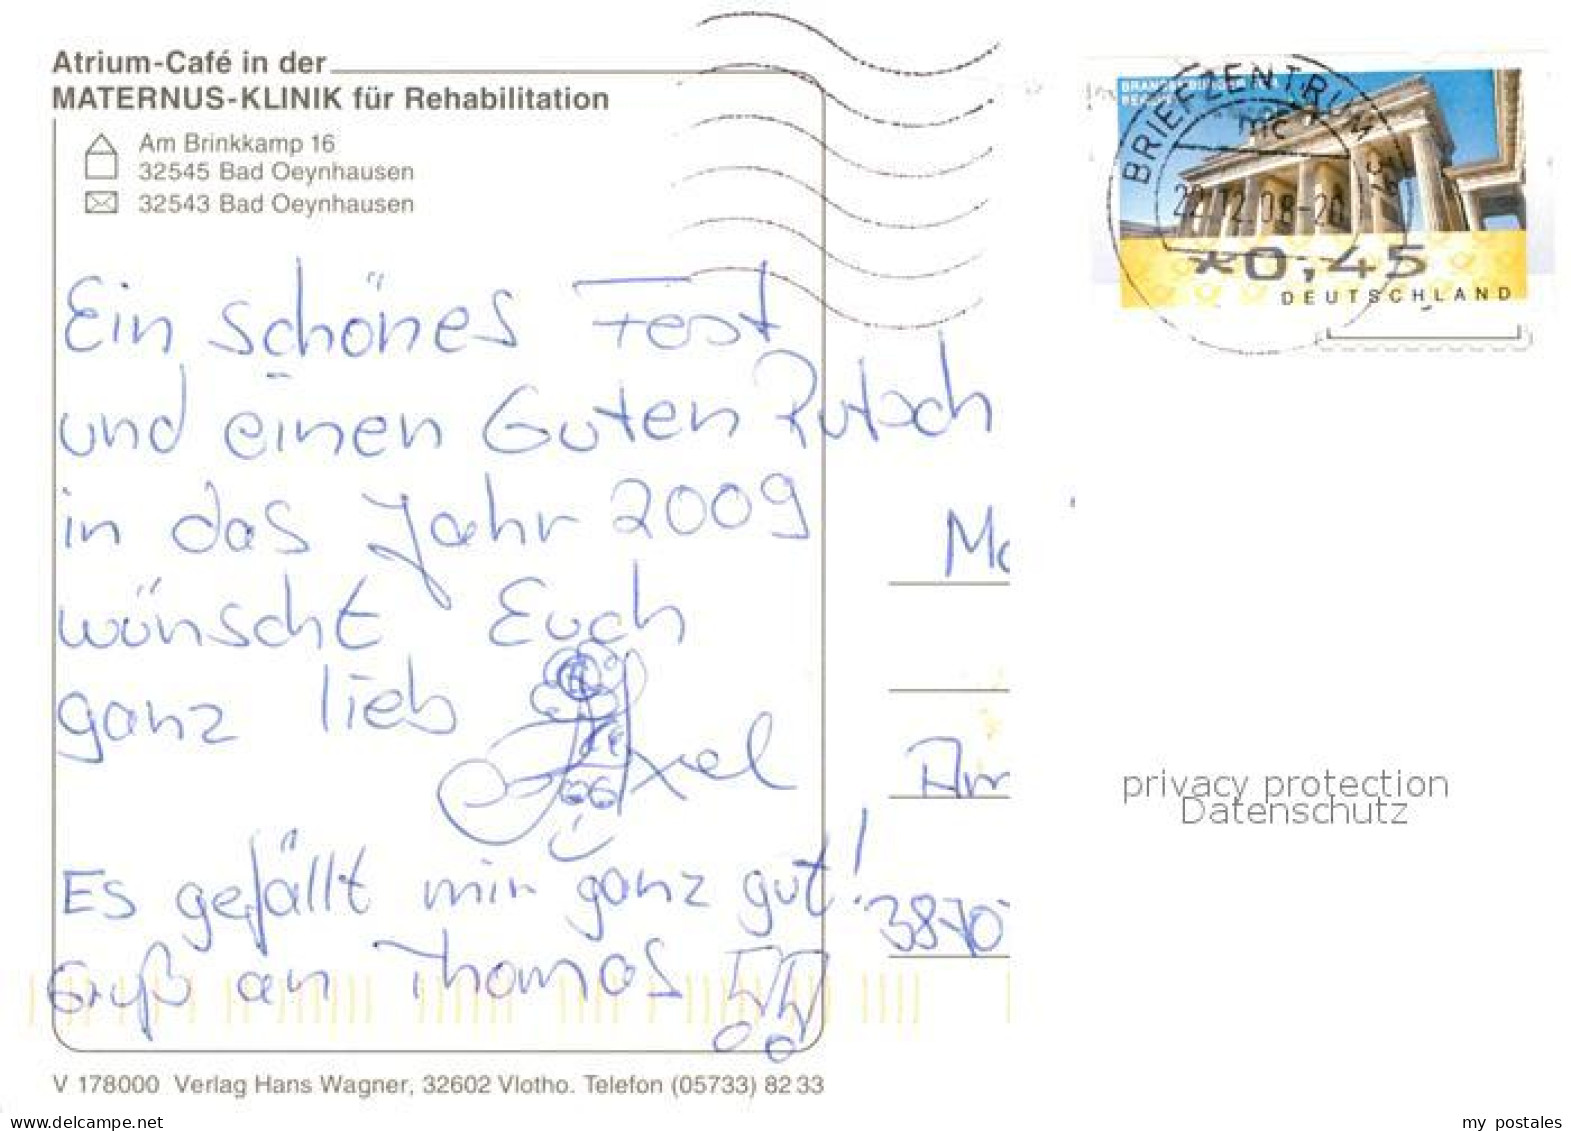 Atrium-Café in der
MATERNUS-KLINIK für Rehabilitation
Am Brinkkamp 16
32545 Bad Oeynhausen
32543 Bad Oeynhausen
BRIEFZENTRUM
mc
22.12.08-20
*0,45
DEUTSCHLAND
Ein schönes Fest
und einen Guten Rutsch
in das Jahr 2009
wünscht Euch
ganz lieb
Axel
Es gefällt mir ganz gut!
Gruß an Thomas !!
Am
3870
privacy protection
Datenschutz
V 178000 Verlag Hans Wagner, 32602 Vlotho. Telefon (05733) 82 33
www.delcampe.net
my_postales